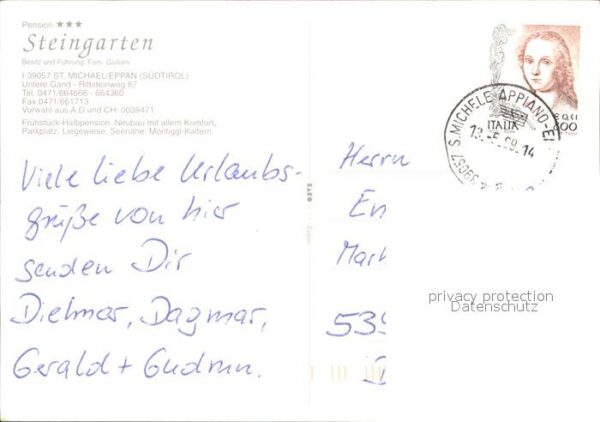 Pension ★★★
Steingarten
Besitz und Führung: Fam. Giuliani
I-39057 ST. MICHAEL/EPPAN (SÜDTIROL)
Untere Gand - Rittsteinweg 57
Tel. 0471/664666 - 664360
Fax 0471/661713
Vorwahl aus A.D und CH: 0039471
Frühstück-Halbpension Neubau mit allem Komfort,
Parkplatz. Liegewiese. Seenähe: Montiggl-Kaltern
Viele liebe Urlaubs-
grüße von hier
senden Dir
Dietmar, Dagmar,
Gerald + Gudrun.
Herrn
En
Mark
539
ITALIA
800
39057 S.MICHELE APPIANO-E
privacy protection
Datenschutz